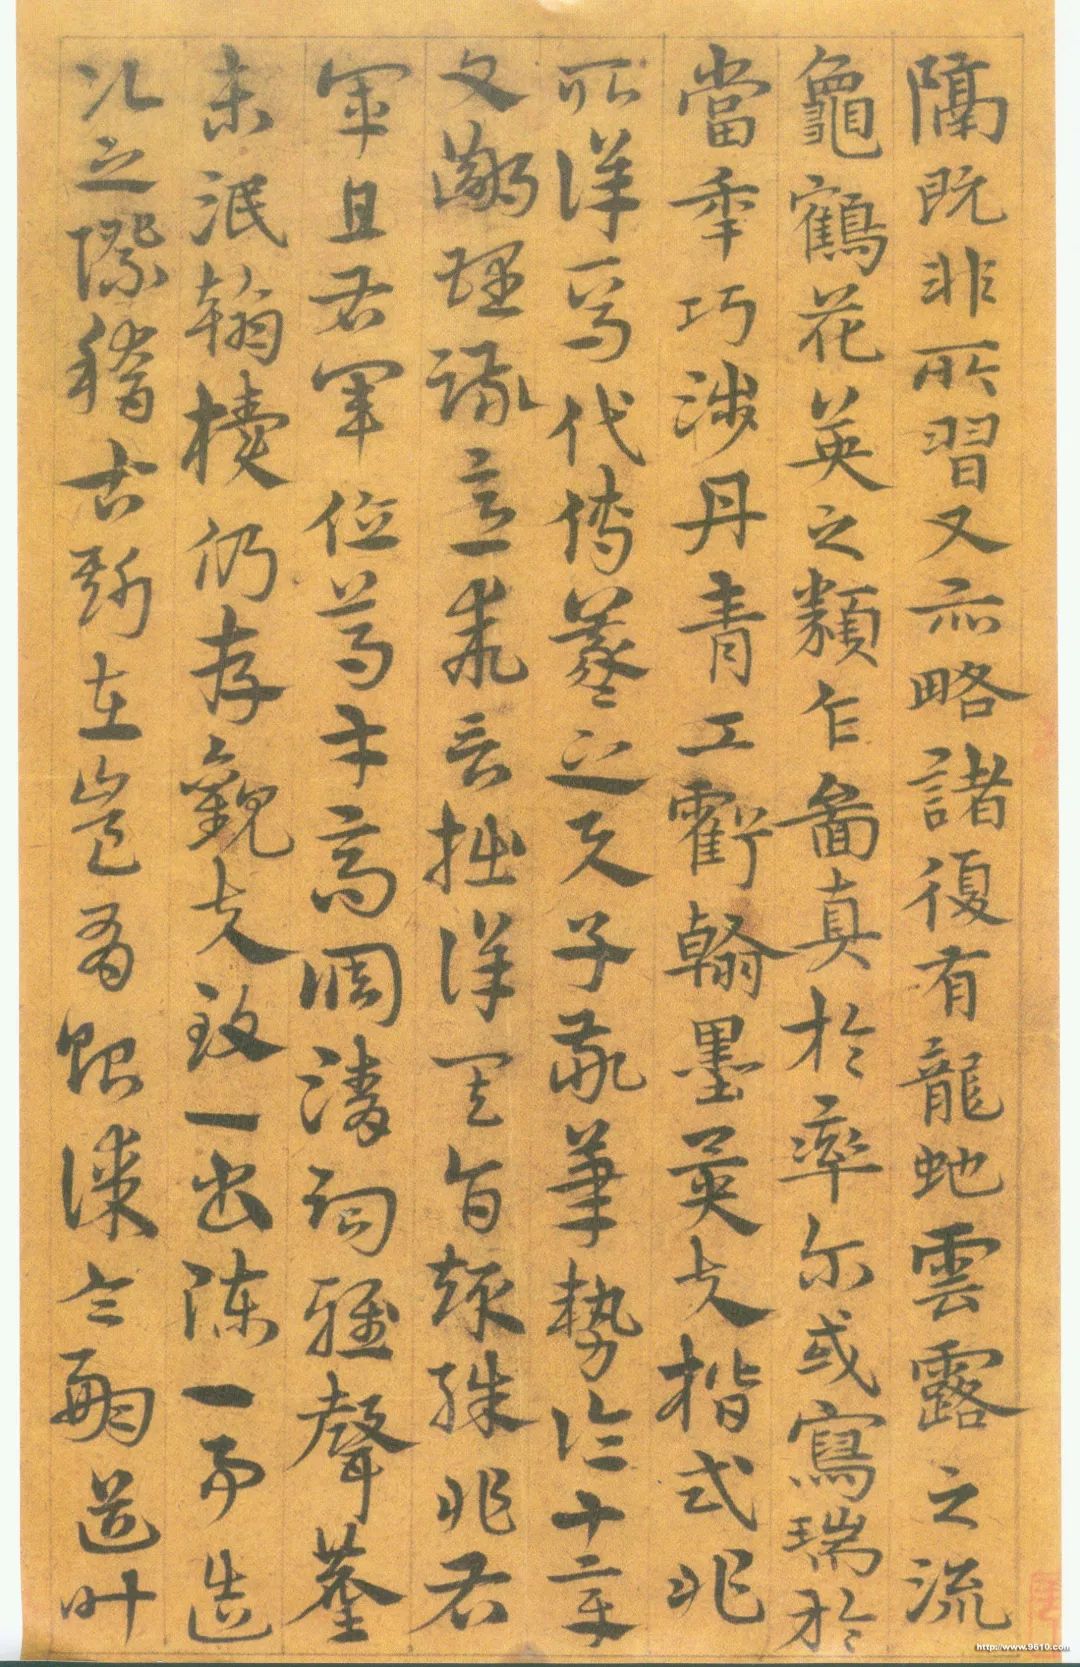 隔既非所習又亦略諸復有龍虵雲露之流
龜鶴花英之類乍啚真於率尔或寫瑞於
當年巧涉丹青工虧翰墨異夫楷式非
所詳焉代傳羲之与子敬筆勢論十章
文鄙理疎意乖言拙詳其旨趣殊非右
軍且右軍位重才高調清詞雅聲塵
未泯翰櫝仍存觀夫致一書陳一事造
次之際稽古斯在豈有貽謀令嗣道叶
http://www.9610.com